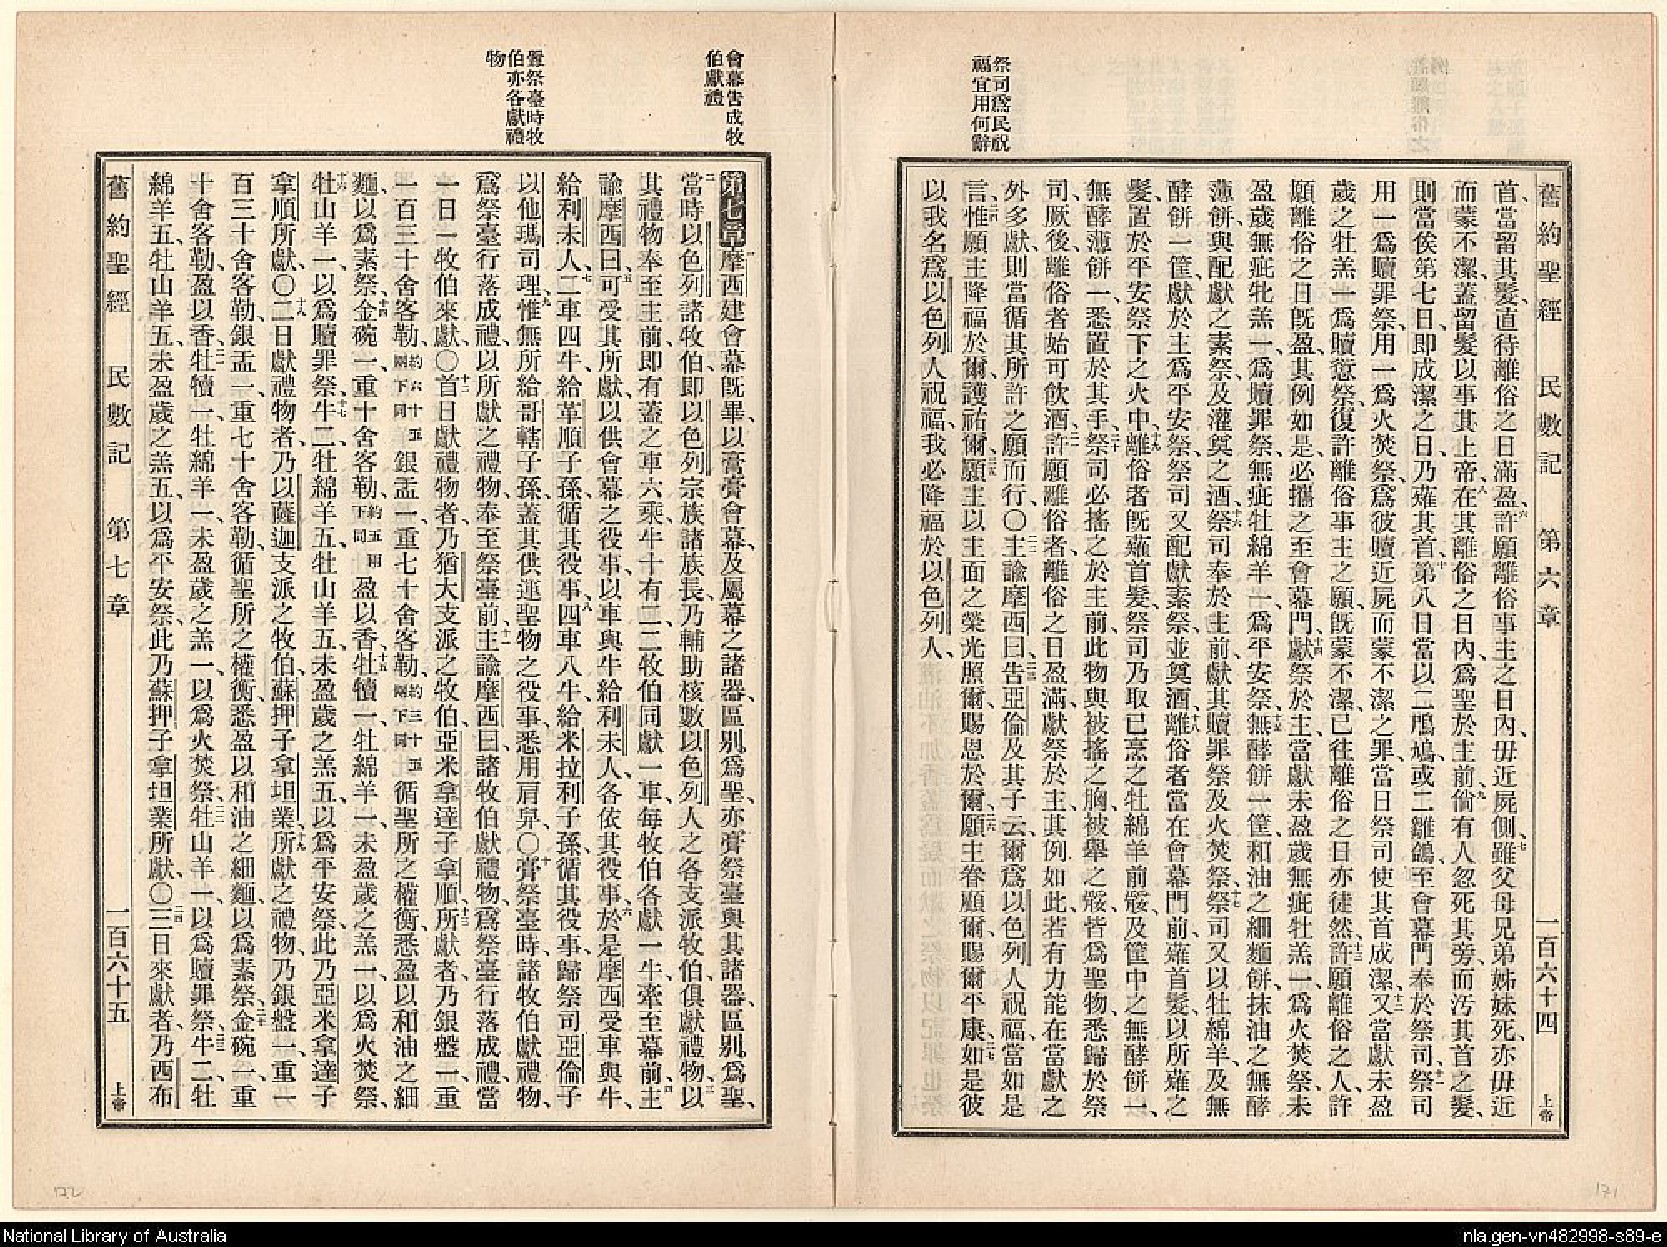 祭司爲民祝
福宜用何辭
舊約聖經 民數記 第六章 一百六十四 上帝
首、當留其髮、直待離俗之日滿盈、六許願離俗事主之日內、毋近屍側、七雖父母兄弟姊妹死、亦毋近
而蒙不潔、蓋留髮以事其上帝、八在其離俗之日內、爲聖於主前、九倘有人忽死其旁、而汚其首之髮、
則當俟第七日、即成潔之日、乃薙其首、十第八日當以二鳲鳩、或二雛鴿、至會幕門、奉於祭司、十一祭司
用一爲贖罪祭、用一爲火焚祭、爲彼贖近屍而蒙不潔之罪、當日祭司使其首成潔、十二又當獻未盈
歲之牡羔一、爲贖愆祭、復許離俗事主之願、旣蒙不潔、已往離俗之日亦徒然、十三許願離俗之人、許
願離俗之日旣盈、其例如是、必攜之至會幕門、十四獻祭於主、當獻未盈歲無疵牡羔一、爲火焚祭、未
盈歲無疵牝羔一、爲贖罪祭、無疵牡綿羊一、爲平安祭、十五無酵餅一筐、和油之細麵餅、抹油之無酵
薄餅、與配獻之素祭、及灌奠之酒、十六祭司奉於主前、獻其贖罪祭、及火焚祭、十七祭司又以牡綿羊、及無
酵餅一筐、獻於主、爲平安祭、祭司又配獻素祭、並奠酒、十八離俗者當在會幕門前、薙首髮、以所薙之
髮、置於平安祭下之火中、十九離俗者旣薙首髮、祭司乃取已烹之牡綿羊前骽、及筐中之無酵餅一、
無酵薄餅一、悉置於其手、二十祭司必搖之於主前、此物與被搖之胸、被舉之骽、皆爲聖物、悉歸於祭
司、厥後、離俗者始可飲酒、二一許願離俗者、離俗之日盈滿、獻祭於主、其例如此、若有力能在當獻之
外多獻、則當循其所許之願而行、〇二二主諭摩西曰、二三告亞倫及其子云、爾爲以色列人祝福、當如是
言、二四惟願主降福於爾、護祐爾、二五願主以主面之榮光照爾、賜恩於爾、二六願主眷顧爾、賜爾平康、二七如是彼
以我名爲以色列人祝福、我必降福於以色列人、
會幕吿成牧
伯獻禮
舋祭臺時牧
伯亦各獻禮
物
第七章 一摩西建會幕旣畢、以膏膏會幕、及屬幕之諸器、區別爲聖、亦膏祭臺與其諸器、區別爲聖、
二當時以色列諸牧伯、即以色列宗族諸族長、乃輔助核數以色列人之各支派牧伯、俱獻禮物、三以
其禮物奉至主前、即有蓋之車六乘、牛十有二、二牧伯同獻一車、每牧伯各獻一牛、牽至幕前、四主
諭摩西曰、五可受其所獻、以供會幕之役事、以車與牛、給利未人、各依其役事、六於是摩西受車與牛、
給利未人、七二車四牛、給革順子孫、循其役事、八四車八牛、給米拉利子孫、循其役事、歸祭司亞倫子
以他瑪司理、九惟無所給哥轄子孫、蓋其供運聖物之役事、悉用肩舁、〇十膏祭臺時、諸牧伯獻禮物、
爲祭臺行落成禮、以所獻之禮物、奉至祭臺前、十一主諭摩西曰、諸牧伯獻禮物、爲祭臺行落成禮、當
一日一牧伯來獻、〇十二首日獻禮物者、乃猶大支派之牧伯、亞米拿達子拿順、十三所獻者、乃銀盤一、重
一百三十舍客勒、約六十五兩下同銀盂一、重七十舍客勒、約三十五兩下同循聖所之權衡、悉盈以和油之細
麵、以爲素祭、十四金碗一、重十舍客勒、約五兩下同盈以香、十五牡犢一、牡綿羊一、未盈歲之羔一、以爲火焚祭、
十六牡山羊一、以爲贖罪祭、十七牛二、牡綿羊五、牡山羊五、未盈歲之羔五、以爲平安祭、此乃亞米拿達子
拿順所獻、〇十八二日獻禮物者、乃以薩迦支派之牧伯、蘇押子拿坦業、十九所獻之禮物、乃銀盤一、重一
百三十舍客勒、銀盂一、重七十舍客勒、循聖所之權衡、悉盈以和油之細麵、以爲素祭、二十金碗一、重
十舍客勒、盈以香、二一牡犢一、牡綿羊一、未盈歲之羔一、以爲火焚祭、二二牡山羊一、以爲贖罪祭、二三牛二、牡
綿羊五、牡山羊五、未盈歲之羔五、以爲平安祭、此乃蘇押子拿坦業所獻、〇二四三日來獻者、乃西布
舊約聖經 民數記 第七章 一百六十五 上帝
172
171
National Library of Australia
nla.gen-vn482998-s89-e